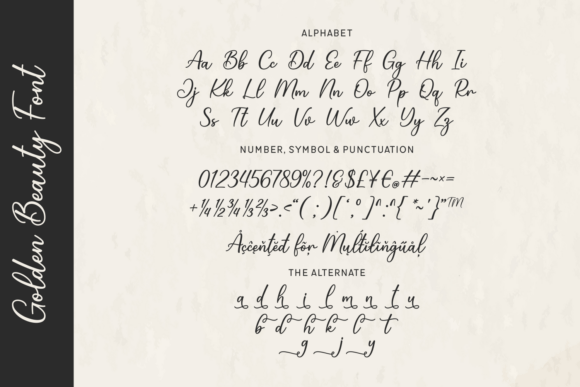 Golden Beauty Font
ALPHABET
Aa Bb Cc Dd Ee Ff Gg Hh Ii
Jj Kk Ll Mm Nn Oo Pp Qq Rr
Ss Tt Uu Vv Ww Xx Yy Zz
NUMBER, SYMBOL & PUNCTUATION
0123456789%?!&$£¥€@#—~×=
+¼½¾⅓⅔>.<“(;)[‘,°]^:^{*~’}”™
Äççěñťéď fộr Mụlťílíņğüạl
THE ALTERNATE
a d h i l m n t u
b d h k l t
g j y